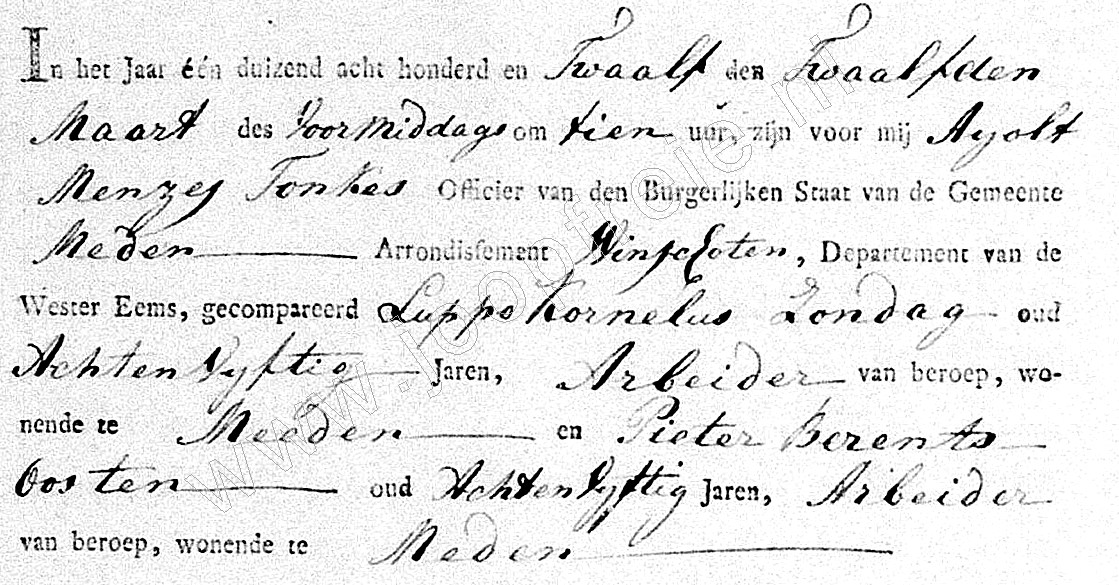 In het Jaar één duizend acht honderd en Twaalf den Twaalfden
Maart des Voormiddags om tien uur, zijn voor mij Ayolt
Menzes Tonkes Officier van den Burgerlijken Staat van de Gemeente
Meden Arrondissement Winschoten, Departement van de
Wester Eems, gecompareerd Luppo Kornelus Zondag oud
Achten Vyftig Jaren, Arbeider van beroep, wo-
nende te Meeden en Pieter Berents
Oosten oud Achten Vyftig Jaren, Arbeider
van beroep, wonende te Meden